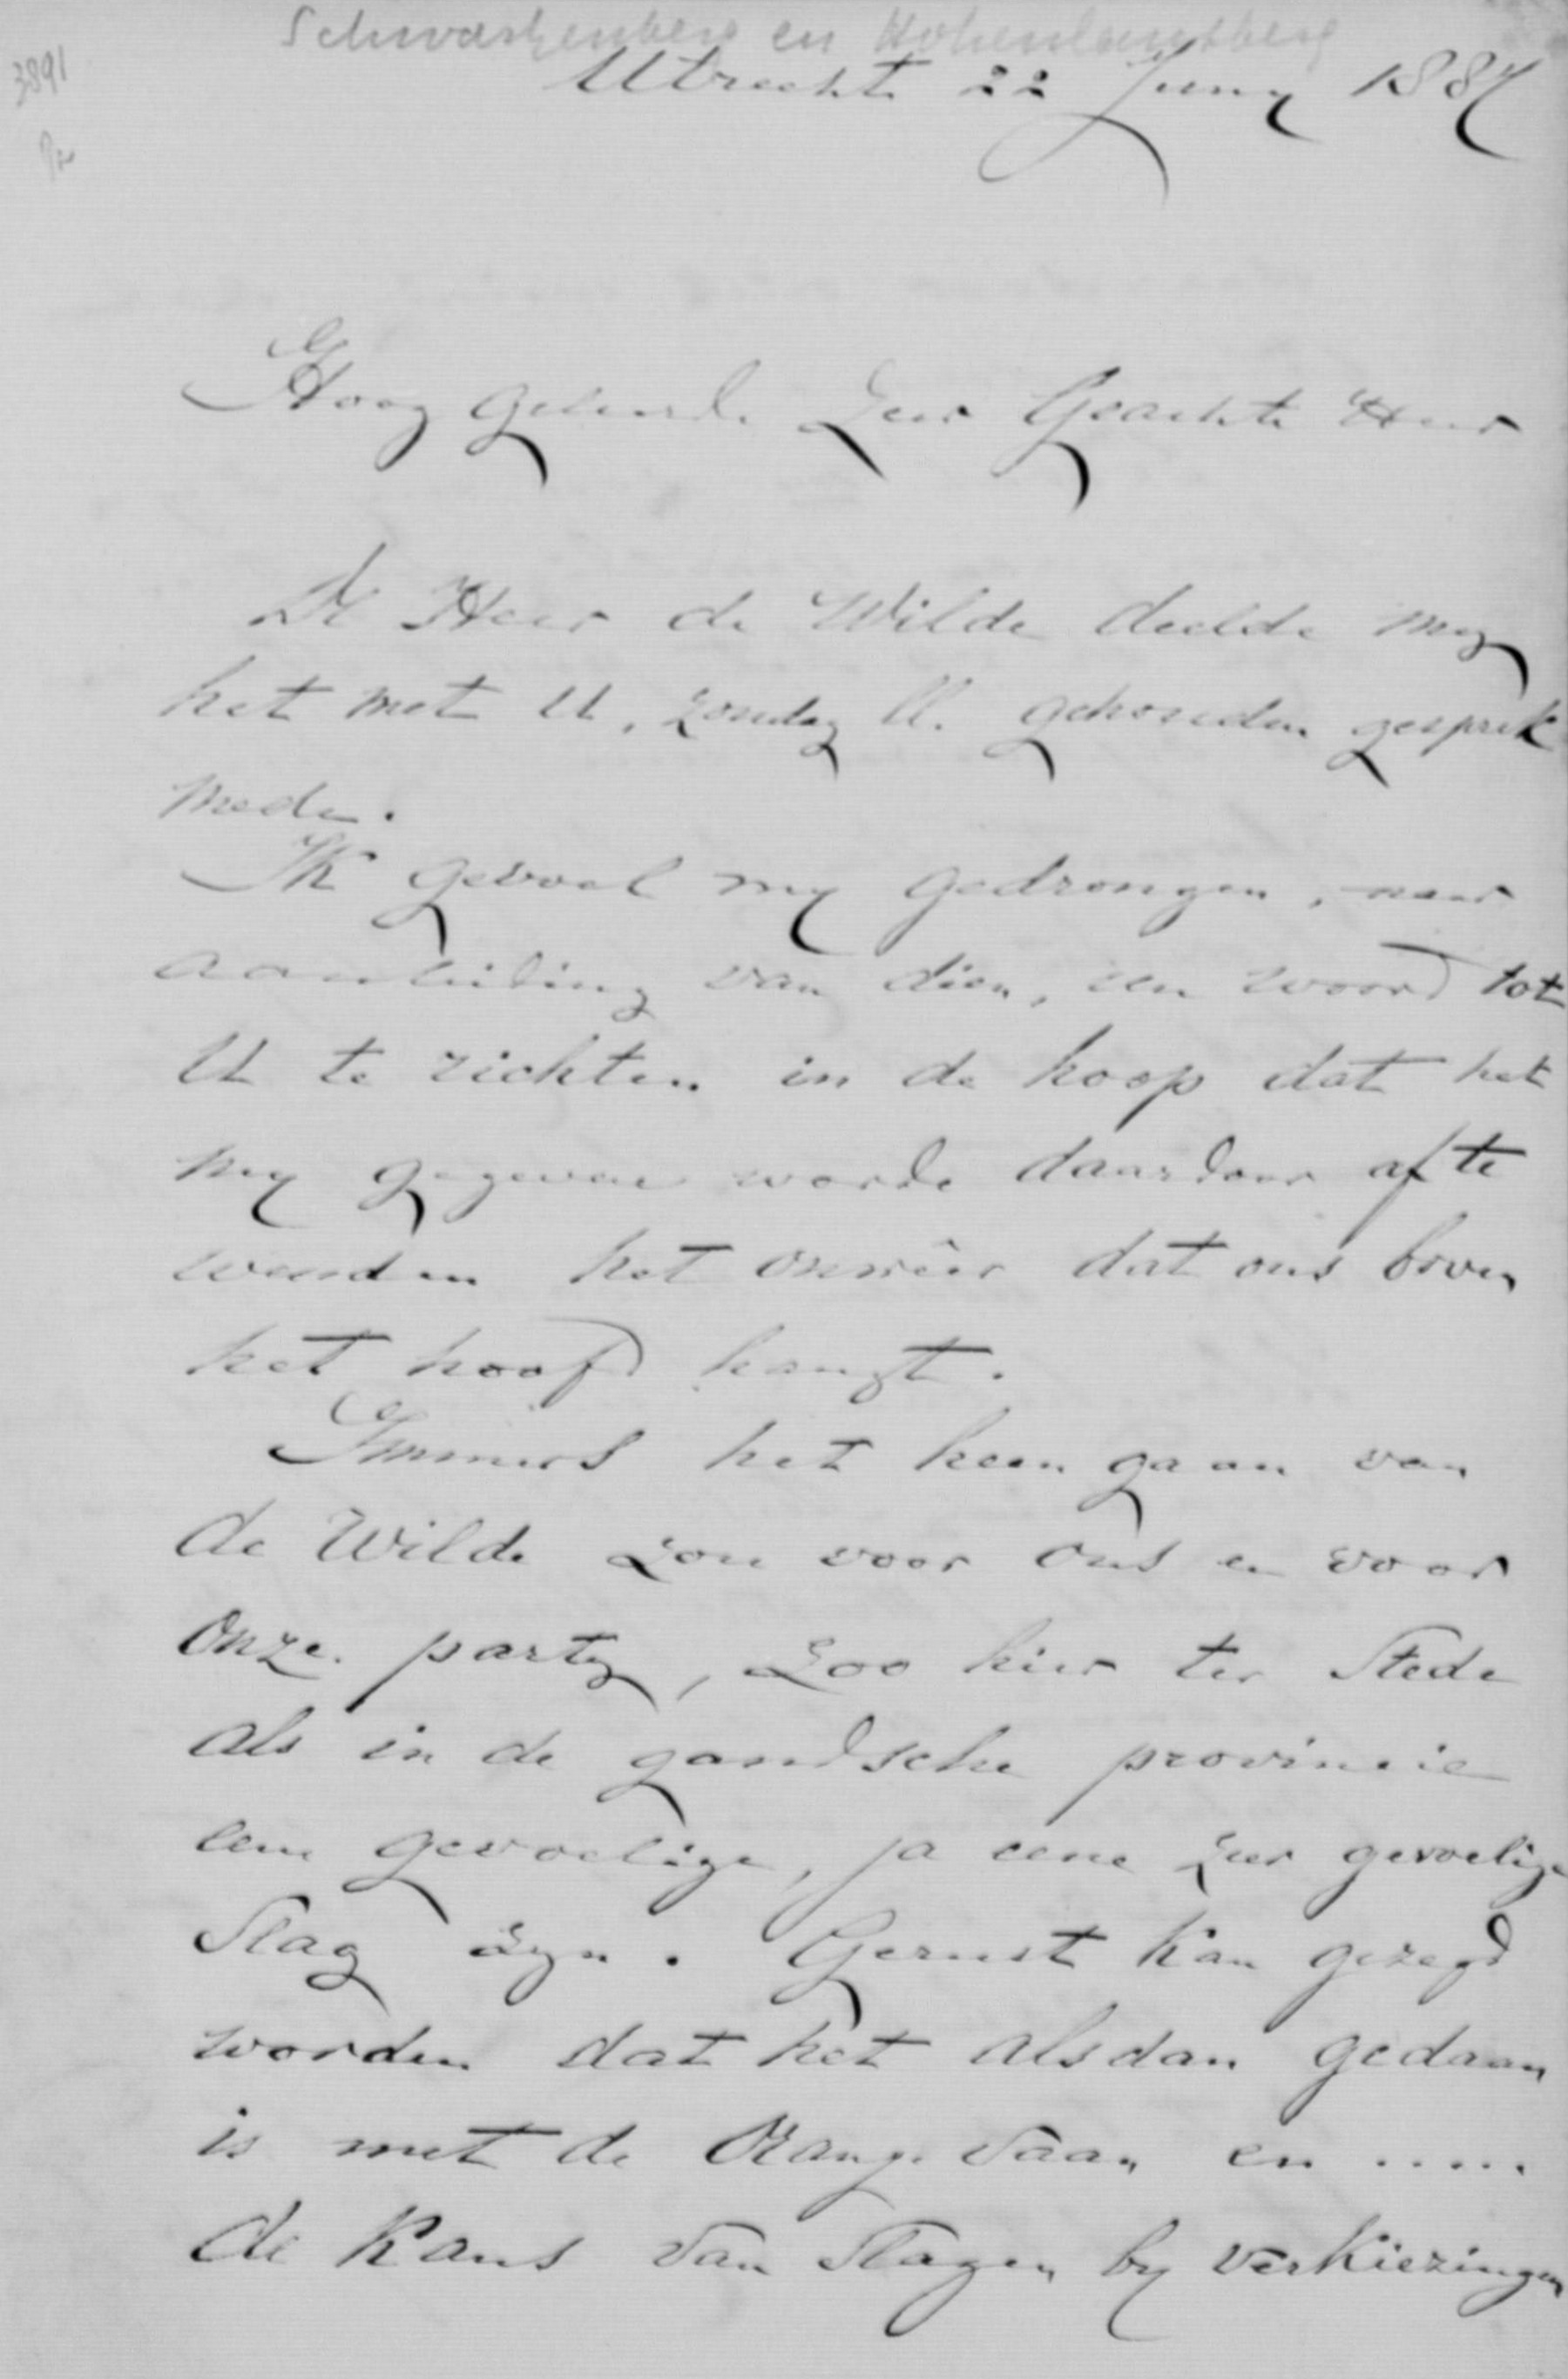 Schwartzenberg en Hohenlansberg
3891
Utrecht 22 Juny 1887
Hoog geleerde Zeer Geachte Heer
De Heer de Wilde deelde my
het met U, zondag ll. gehouden gesprek
mede.
Ik gevoel my gedrongen, naar
aanleiding van dien, een woord tot
U te richten in de hoop dat het
my gegeven worde daardoor af te
wenden het onweêr dat ons boven
het hoofd hangt.
Immers het heen gaan van
de Wilde zou voor ons en voor
onze party, zoo hier ter Stede
als in de gandsche provincie
eene gevoelige, ja eene zeer gevoelige
Slag zyn. Gerust kan gezegd
worden dat het alsdan gedaan
is met de Oranje Vaan en .....
de Kans van Slagen by verkiezingen